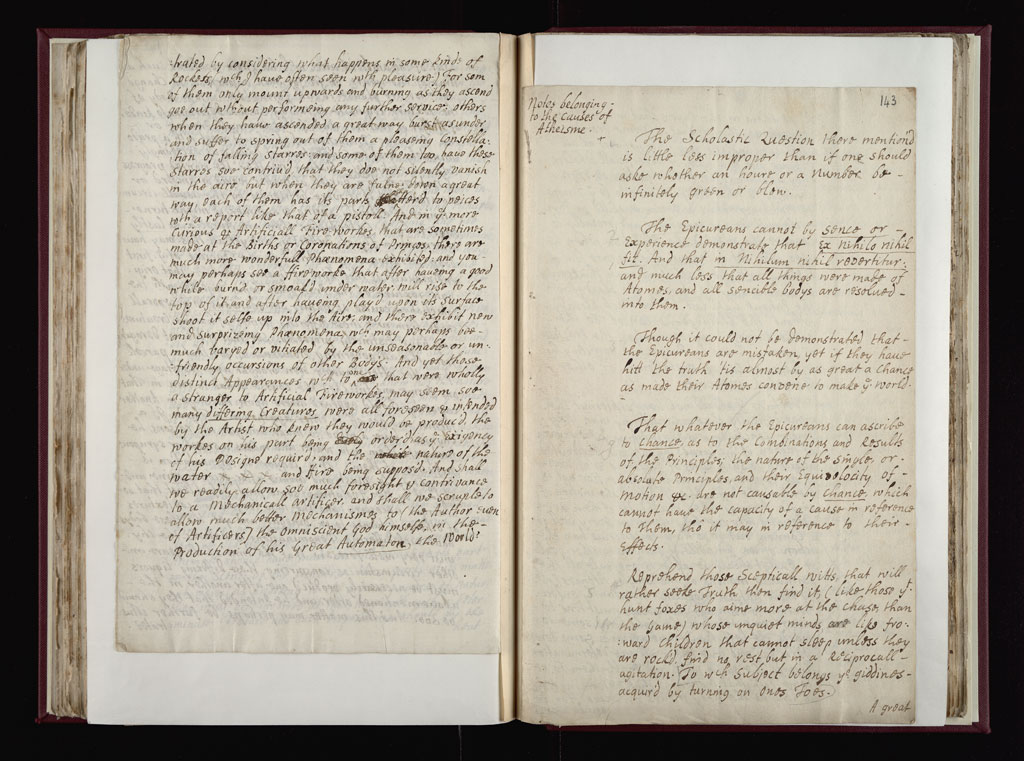 :trated by considering what happens in some kinds of
Rockess (wch I have often seen wth pleasure) For som
of them only mount upwards and burning as they ascend
goe out without performeing any further service; others
when they have ascended a great way burst asunder
and suffer to spring out of them a pleaseing Constella:
tion of falling Starres; and some of them too, have these
Starres soe contriu'd that they doe not silently vanish
in the aire but when they are falne down a great
way, each of them has its parts to peices
wth a report like that of a pistoll. And in ye more
Curious of Artificiall Fire workes, that are sometimes
made at the Births or Coronations of Princes, there are
much more wonderfull Phænomena exhibited: and you
may perhaps see a ffireworke that after haueing a good
while burnd or smoak'd under water will rise to the
top of it, and after haueing play'd upon its Surface
shoot it selfe up into the Aire; and there exhibit new
and surprizeing Phænomena; wch may perhaps bee-
much varyed or vitiated by the unseasonable or un:
:friendly occursions of other Bodys. And yet these
distinct Appearances wch to one that were wholly
a stranger to Artificial Fireworkes, may seem soe
many differing Creatures were all foreseen & intended
by the Artist who knew they would be produc'd, the
workes on his part being order'd as ye exigency
of his Designe requir'd; and the nature of the
water and Fire being suppos'd. And shall
we readily allow soe much foresight & contrivance
to a Mechanicall artificer, and shall we scruple to
allow much better Mechanismes to (the Author Even
of Artificers) the Omniscient God himselfe, in the-
Production of his Great Automaton the World?
Notes belonging-
to the Causes of
Atheisme.
143
The Scholastic Question there mention'd
is little less improper than if one should
aske whether an houre or a Number be-
infinitely green or blew.
The Epicureans cannot by sence or
Experience demonstrate that Ex Nihilo nihil
fit. And that in Nihilum nihil revertitur;
and much less that all things were made of
Atomes, and all sencible Bodys are resolved-
into them.
Though it could not be demonstrated that-
the Epicureans are mistaken, yet if they have
hitt the truth tis almost by as great a Chance
as made their Atomes convene to make ye world
That whatever the Epicureans can ascribe
to Chance, as to the Combinations and Results
of the Principles; the nature of the Single, or-
absolute Principles, and their Equivelocity of-
Motion &c. are not causable by Chance, which
cannot have the capacity of a cause in reference
to Them, tho it may in reference to their-
Effects.
Reprehend those Scepticall witts, that will
rather seeke Truth then find it, (like those yt
hunt foxes who aime more at the chase, than
the Game) whose unquiet minds are like fro:
:ward Children that cannot sleep unless they
are rock'd, find no rest but in a Reciprocall-
agitation. (To wch Subject belongs ye giddines-
acquir'd by turning on ones Toes.)
A great